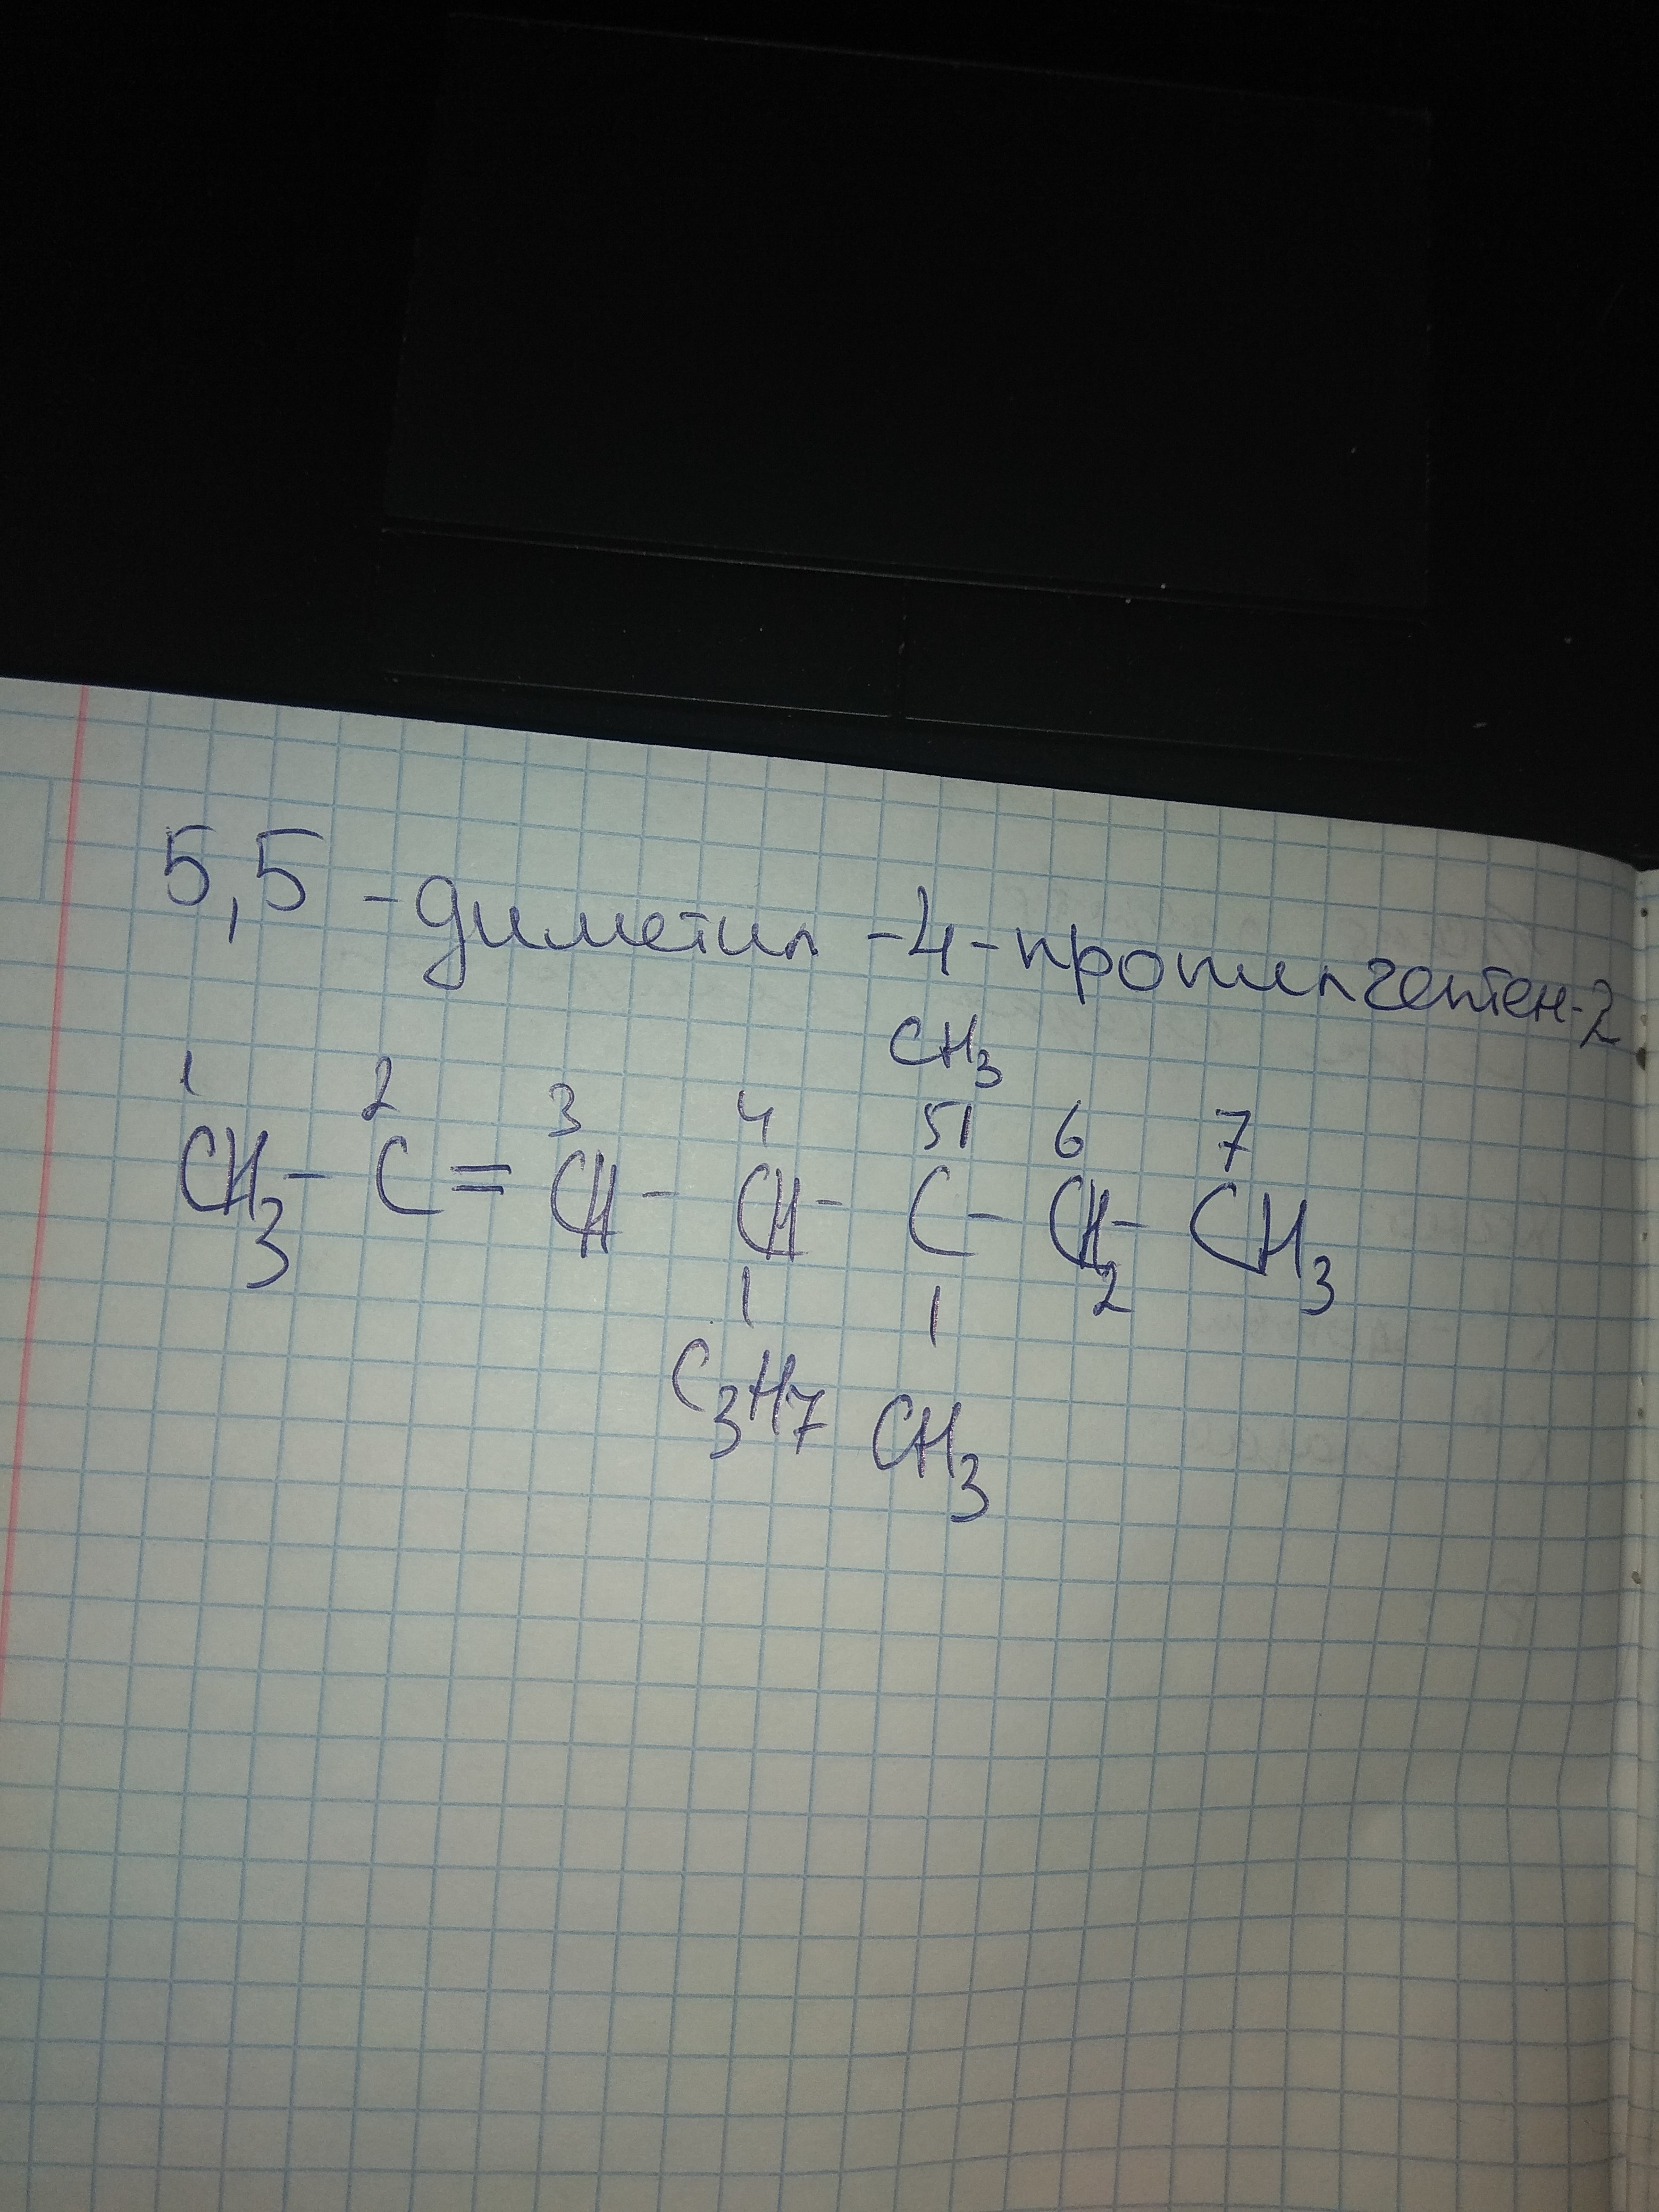 5,5 -диметил -4-пропилгептен-2
CH3
1 2 3 4 5 6 7
CH3 - C = CH - CH - C - CH2 - CH3
C3H7 CH3